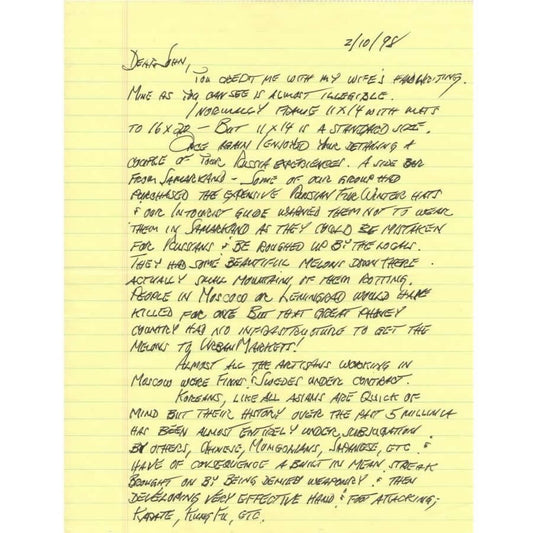 2/10/98
Dear John,
You credit me with my wife's handwriting.
Mine as you can see is almost illegible.
I normally frame 11x14 with mats
to 16x20 - But 11x14 is a standard size.
Once again I enjoyed your detailing a
couple of your Russia experiences. A side bar
from Samarkand - Some of our group had
purchased the expensive Russian Fur Winter hats
& our Intourist guide warned them not to wear
them in Samarkand as they could be mistaken
for Russians & be roughed up by the locals.
They had some beautiful melons down there.
Actually small mountains of them rotting.
People in Moscow or Leningrad would have
killed for one But that great phoney
country had no infrastructure to get the
melons to Urban Markets!
Almost all the artisans working in
Moscow were Finns & Swedes under contract.
Koreans, like all Asians are quick of
mind but their history over the past 5 millinia
has been almost entirely under subjugation
by others, Chinese, Mongolians, Japanese, etc. &
have of consequence a built in mean streak
brought on by being denied weaponry & then
developing very effective hand & foot attacking;
Karate, Kung Fu, etc.